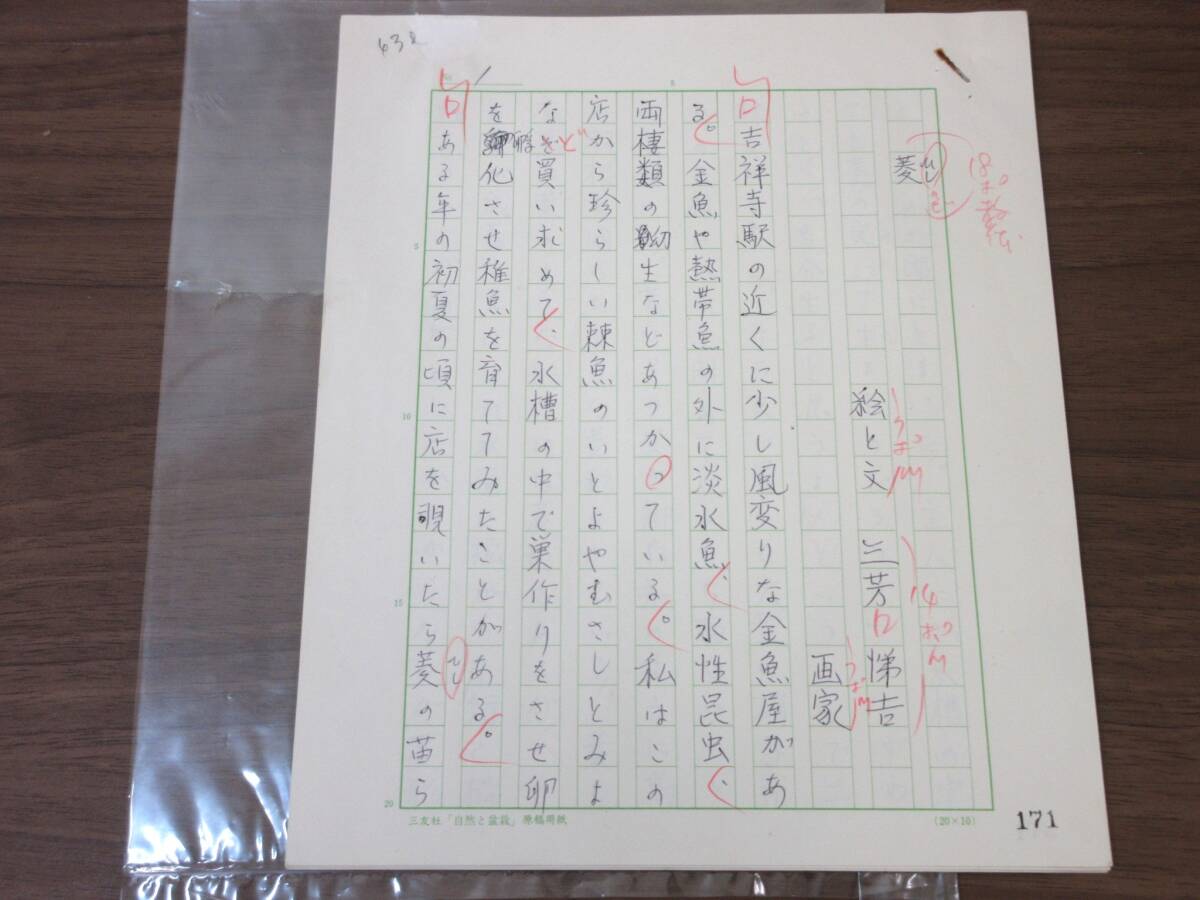 菱 ひし
絵と文 三芳 悌吉
画家
吉祥寺駅の近くに少し風変りな金魚屋があ
る。金魚や熱帯魚の外に淡水魚、水性昆虫、
両棲類の幼生などあつかっている。私はこの
店から珍らしい棘魚のいとよやむさしとみよ
などを買い求めて、水槽の中で巣作りをさせ卵
を孵化させ稚魚を育ててみたことがある。
ある年の初夏の頃に店を覗いたら菱の苗ら
ひし
三友社「自然と盆栽」原稿用紙
(20×10)
171
5
10
15
20